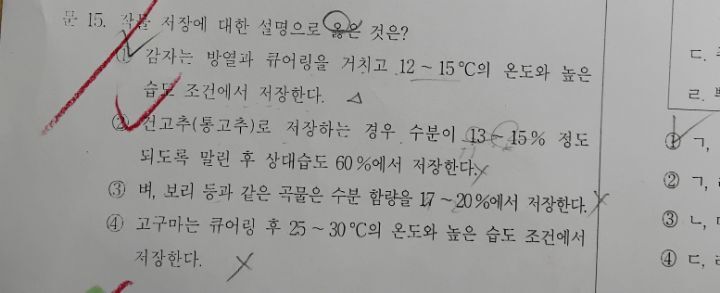 문 15. 작물 저장에 대한 설명으로 옳은 것은?
① 감자는 방열과 큐어링을 거치고 12 ~ 15 ℃의 온도와 높은
습도 조건에서 저장한다.
② 건고추(통고추)로 저장하는 경우 수분이 13 ~ 15 % 정도
되도록 말린 후 상대습도 60 %에서 저장한다.
③ 벼, 보리 등과 같은 곡물은 수분 함량을 17 ~ 20 %에서 저장한다.
④ 고구마는 큐어링 후 25 ~ 30 ℃의 온도와 높은 습도 조건에서
저장한다.
ㄷ.
ㄹ.
① ㄱ,
② ㄱ,
③ ㄴ,
④ ㄷ,